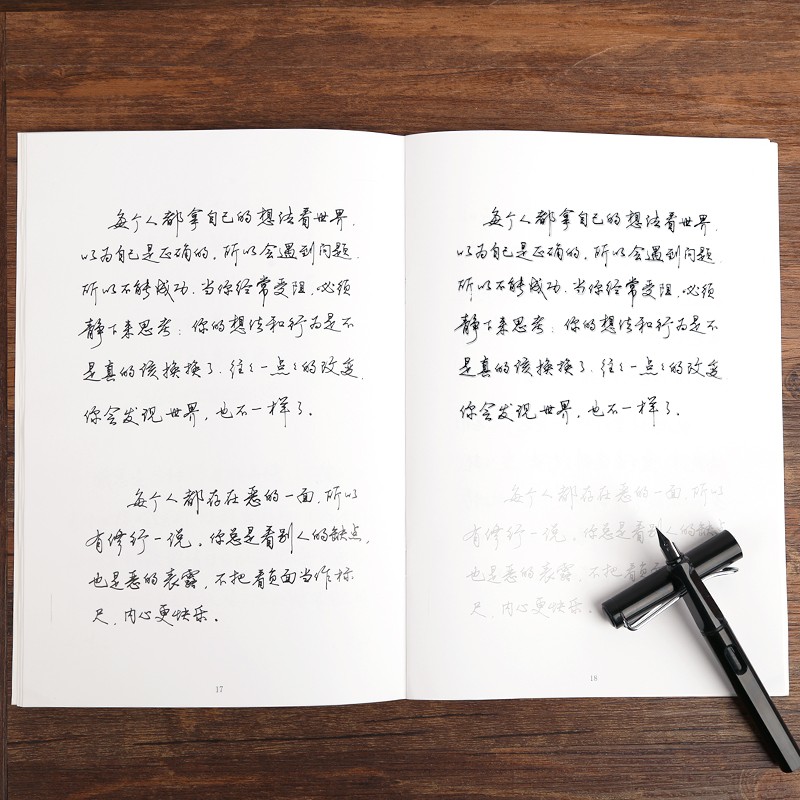 每个人都拿自己的想法看世界，
以为自己是正确的，所以会遇到问题，
所以不能成功。当你经常受阻，必须
静下来思考：你的想法和行为是不
是真的该换换了，往往一点点的改变，
你会发现世界，也不一样了。
每个人都存在恶的一面，所以
有修行一说。你总是看别人的缺点，
也是恶的表露，不把看负面当作标
尺，内心更快乐。
17
每个人都拿自己的想法看世界，
以为自己是正确的，所以会遇到问题，
所以不能成功。当你经常受阻，必须
静下来思考：你的想法和行为是不
是真的该换换了，往往一点点的改变，
你会发现世界，也不一样了。
每个人都存在恶的一面，所以
有修行一说。你总是看别人的缺点
也是恶的表露，不把看负面
尺，内心更快乐。
18